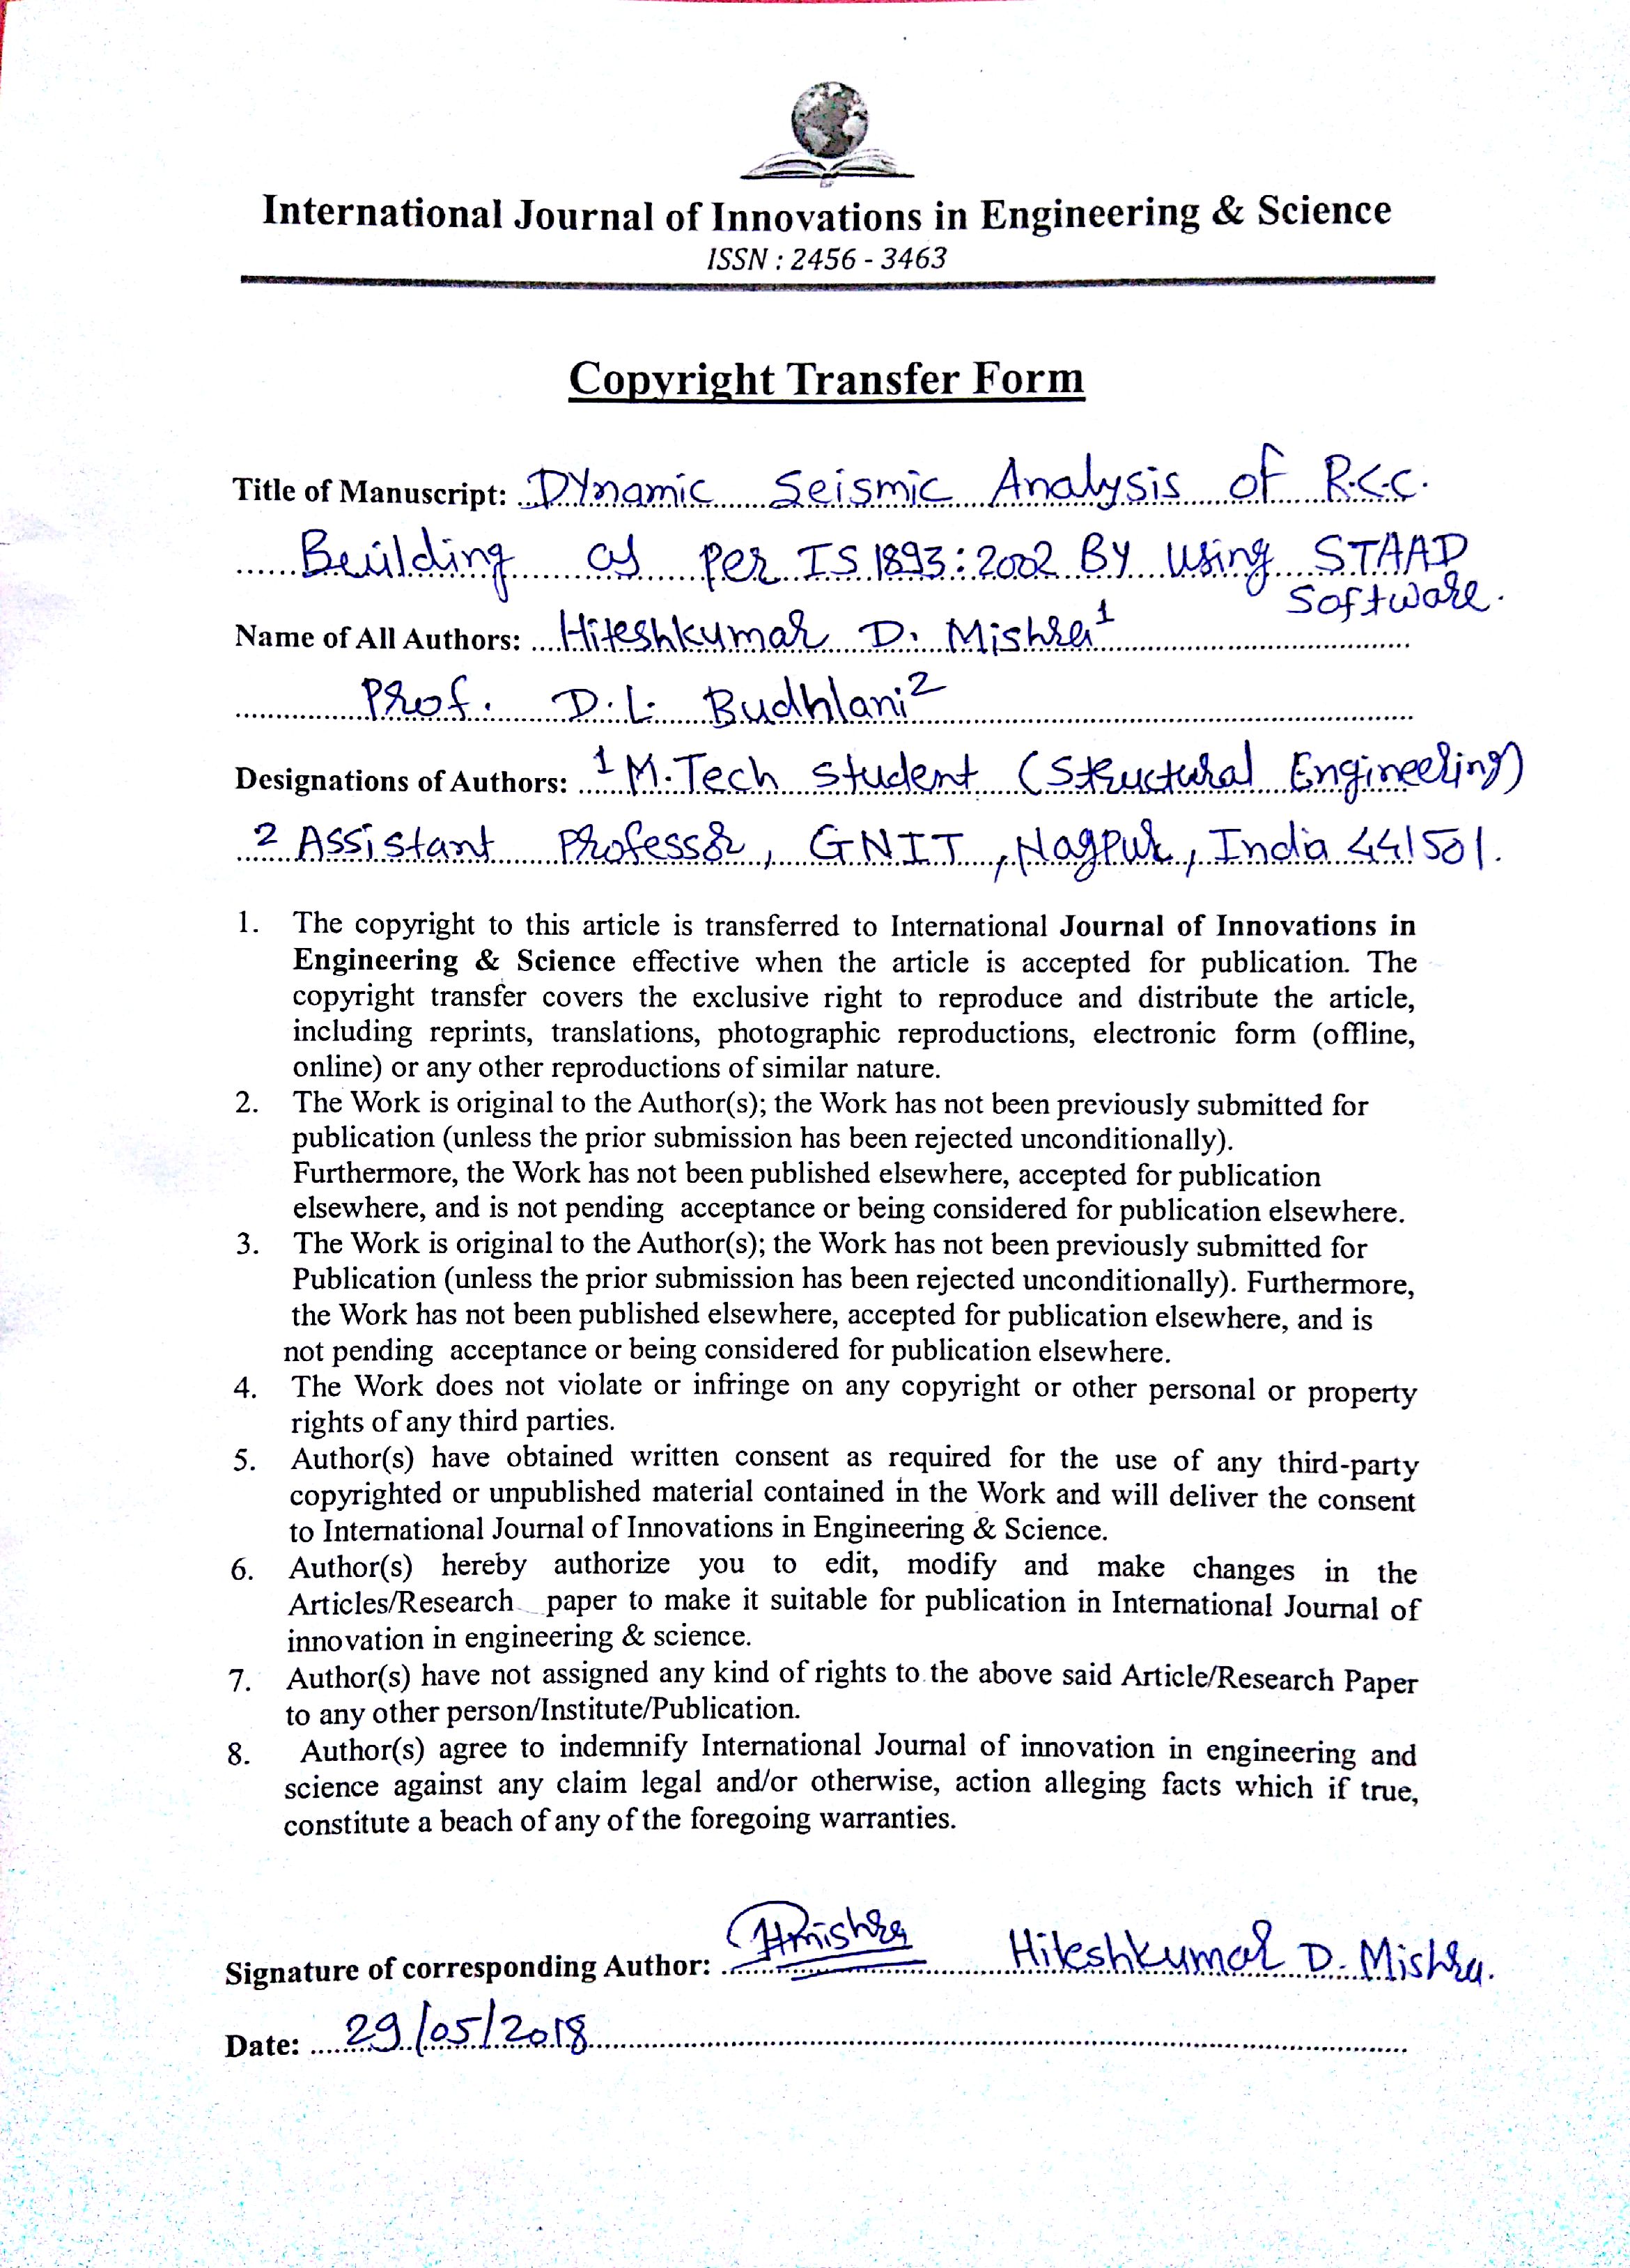 International Journal of Innovations in Engineering & Science
ISSN : 2456 - 3463
Copyright Transfer Form
Title of Manuscript: Dynamic Seismic Analysis of R.C.C.
Building as per IS 1893:2002 By Using STAAD
Software.
Name of All Authors: Hiteshkumar D. Mishra¹
Prof. D.L. Budhlani²
Designations of Authors: ¹ M.Tech student (Structural Engineering)
² Assistant Professor, GNIT, Nagpur, India 441501.
1. The copyright to this article is transferred to International Journal of Innovations in
Engineering & Science effective when the article is accepted for publication. The
copyright transfer covers the exclusive right to reproduce and distribute the article,
including reprints, translations, photographic reproductions, electronic form (offline,
online) or any other reproductions of similar nature.
2. The Work is original to the Author(s); the Work has not been previously submitted for
publication (unless the prior submission has been rejected unconditionally).
Furthermore, the Work has not been published elsewhere, accepted for publication
elsewhere, and is not pending acceptance or being considered for publication elsewhere.
3. The Work is original to the Author(s); the Work has not been previously submitted for
Publication (unless the prior submission has been rejected unconditionally). Furthermore,
the Work has not been published elsewhere, accepted for publication elsewhere, and is
not pending acceptance or being considered for publication elsewhere.
4. The Work does not violate or infringe on any copyright or other personal or property
rights of any third parties.
5. Author(s) have obtained written consent as required for the use of any third-party
copyrighted or unpublished material contained in the Work and will deliver the consent
to International Journal of Innovations in Engineering & Science.
6. Author(s) hereby authorize you to edit, modify and make changes in the
Articles/Research paper to make it suitable for publication in International Journal of
innovation in engineering & science.
7. Author(s) have not assigned any kind of rights to the above said Article/Research Paper
to any other person/Institute/Publication.
8. Author(s) agree to indemnify International Journal of innovation in engineering and
science against any claim legal and/or otherwise, action alleging facts which if true,
constitute a beach of any of the foregoing warranties.
Signature of corresponding Author: HMishra Hiteshkumar D. Mishra.
Date: 29/05/2018